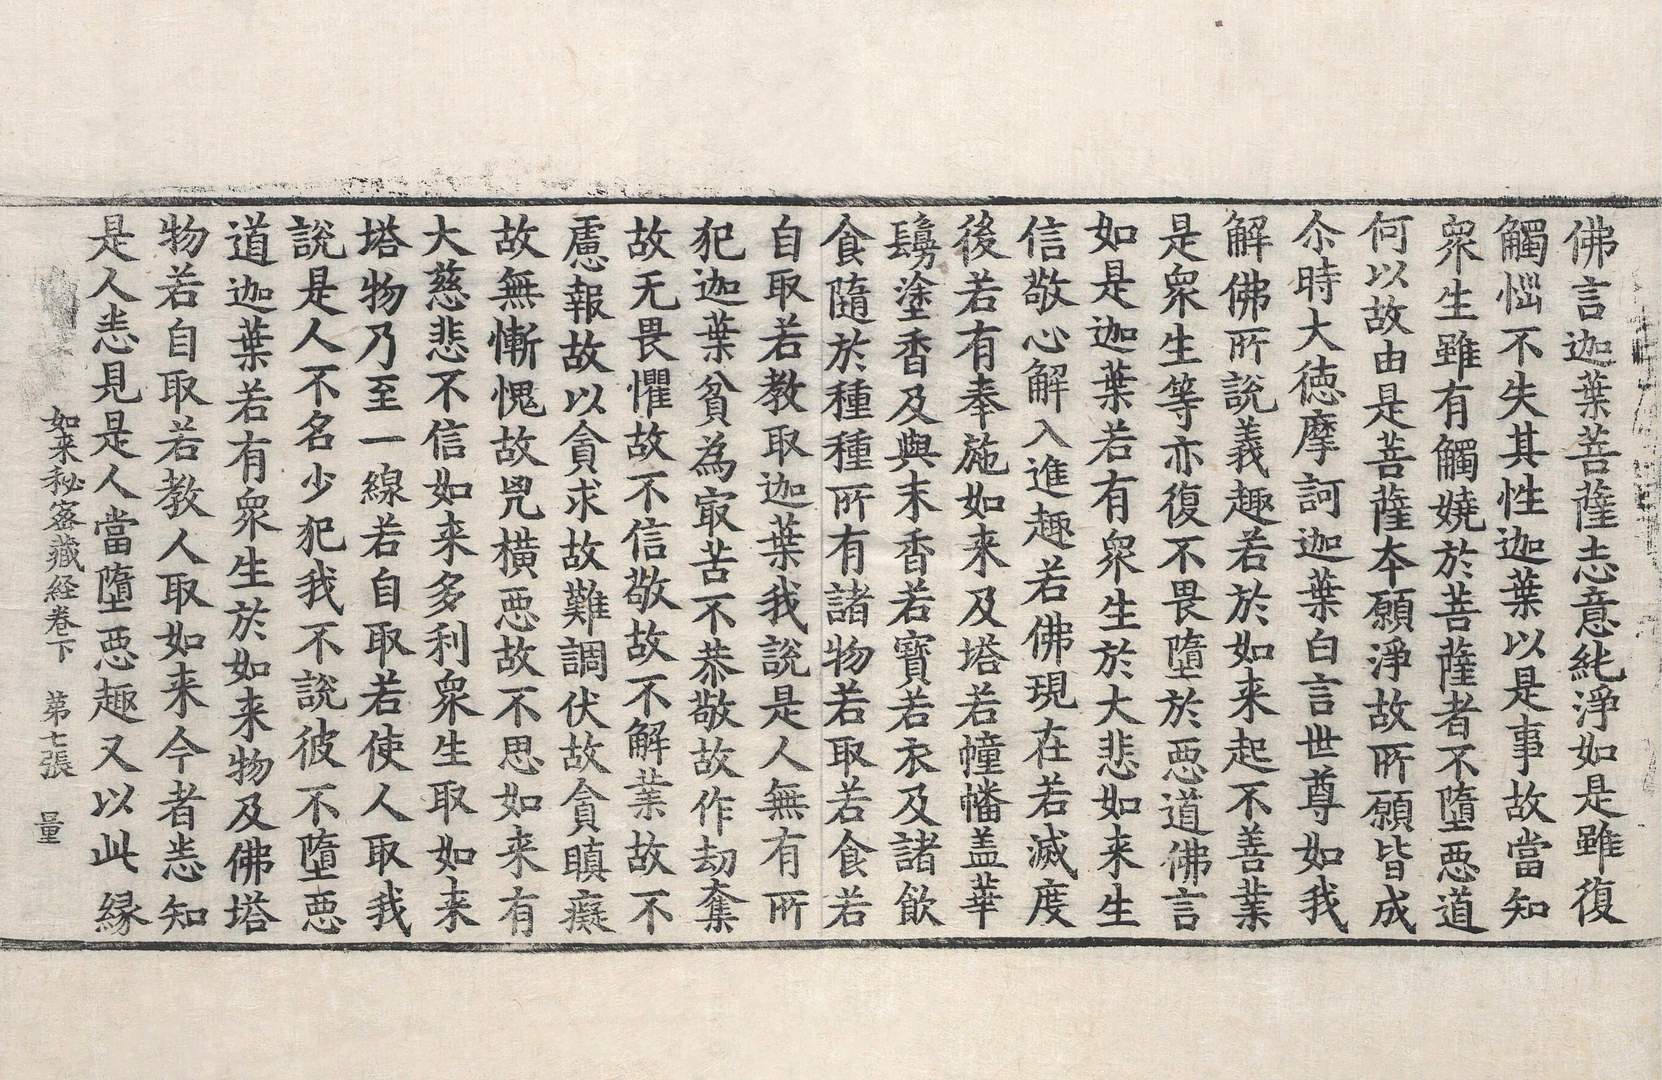 佛言迦葉菩薩志意純淨如是雖復
觸惱不失其性迦葉以是事故當知
衆生雖有觸嬈於菩薩者不墮惡道
何以故由是菩薩本願淨故所願皆成
尒時大徳摩訶迦葉白言世尊如我
解佛所説義趣若於如来起不善業
是衆生等亦復不畏墮於惡道佛言
如是迦葉若有衆生於大悲如来生
信敬心解入進趣若佛現在若滅度
後若有奉施如来及塔若幢幡盖華
鬘塗香及與末香若寶若衣及諸飲
食隨於種種所有諸物若取若食若
自取若教取迦葉我説是人無有所
犯迦葉貧為㝡苦不恭敬故作劫奪
故无畏懼故不信敬故不解業故不
慮報故以貪求故難調伏故貪瞋癡
故無慚愧故兇横惡故不思如来有
大慈悲不信如来多利衆生取如来
塔物乃至一線若自取若使人取我
説是人不名少犯我不説彼不墮惡
道迦葉若有衆生於如来物及佛塔
物若自取若教人取如来今者悉知
是人悉見是人當墮惡趣又以此縁
如来秘密藏経卷下 第七張 量